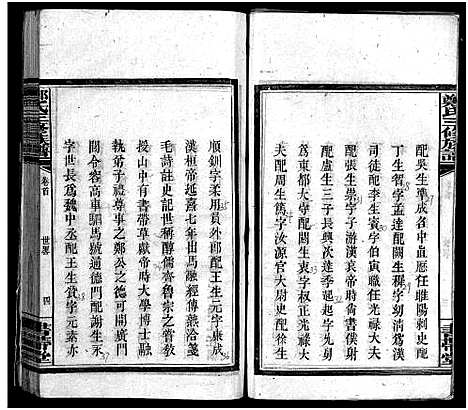 鄭氏三修族譜
配吳生準成名中血應任睢陽刺史配
丁生智字孟達配關生興字清為漢
司徒配李生賓字伯寅職任光祿大夫
配張生崇字子游漢哀帝時為尚書僕射
配盧生三子長興次達季起起字允躬
為東都大守配關生衷字权正光祿大
夫配周生篤字汝源官大尉史配徐生
順釧字柔用員外郎配王生元字康成
漢桓帝延熹七年出馬融經傳無洽箋
毛詩註史記世稱醇儒齊魯宗之嘗教
授山中有書帶草獻帝時大學博士融
執弟子禮尊事之鄭公之德可開廣門
閭令容高車駟馬號通德門配謝生永
字世長為魏中之丞配王生賞字元素亦
卷首
世畧
四
書帶堂